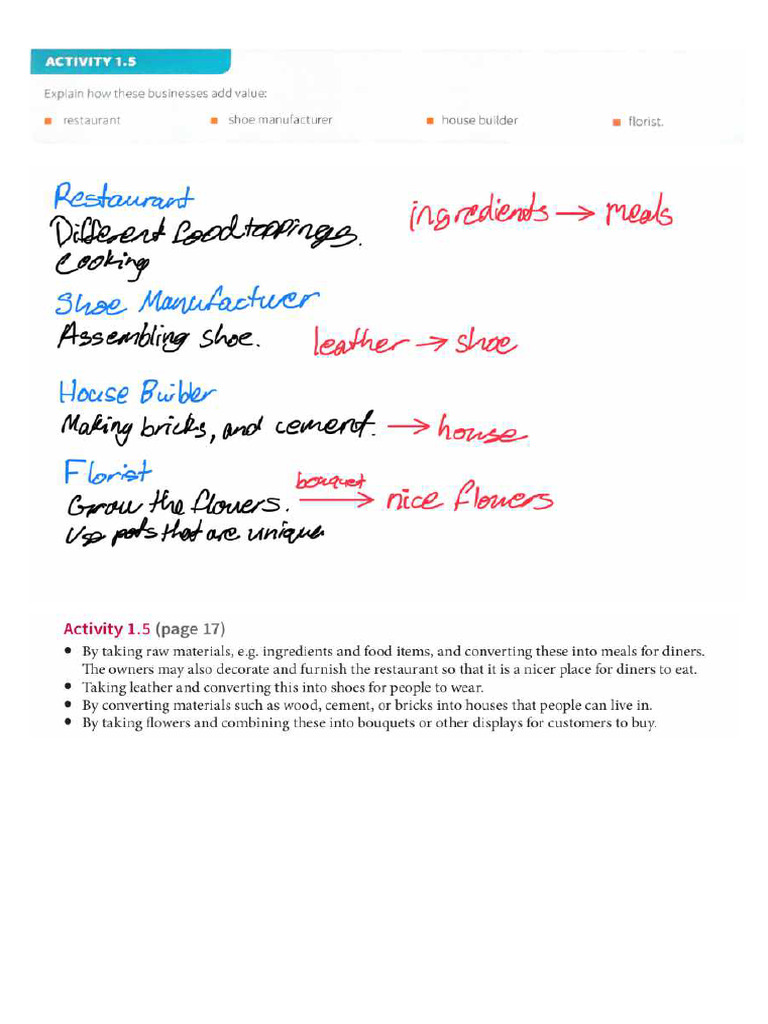 ACTIVITY 1.5
Explain how these businesses add value:
■ restaurant ■ shoe manufacturer ■ house builder ■ florist.
Restaurant
Different food toppings. ingredients → meals
Cooking
Shoe Manufactuer
Assembling shoe. leather → shoe
House Builder
Making bricks, and cement. → house
Florist
Grow the flowers. bouquet → nice flowers
Use pots that are unique
Activity 1.5 (page 17)
• By taking raw materials, e.g. ingredients and food items, and converting these into meals for diners.
The owners may also decorate and furnish the restaurant so that it is a nicer place for diners to eat.
• Taking leather and converting this into shoes for people to wear.
• By converting materials such as wood, cement, or bricks into houses that people can live in.
• By taking flowers and combining these into bouquets or other displays for customers to buy.